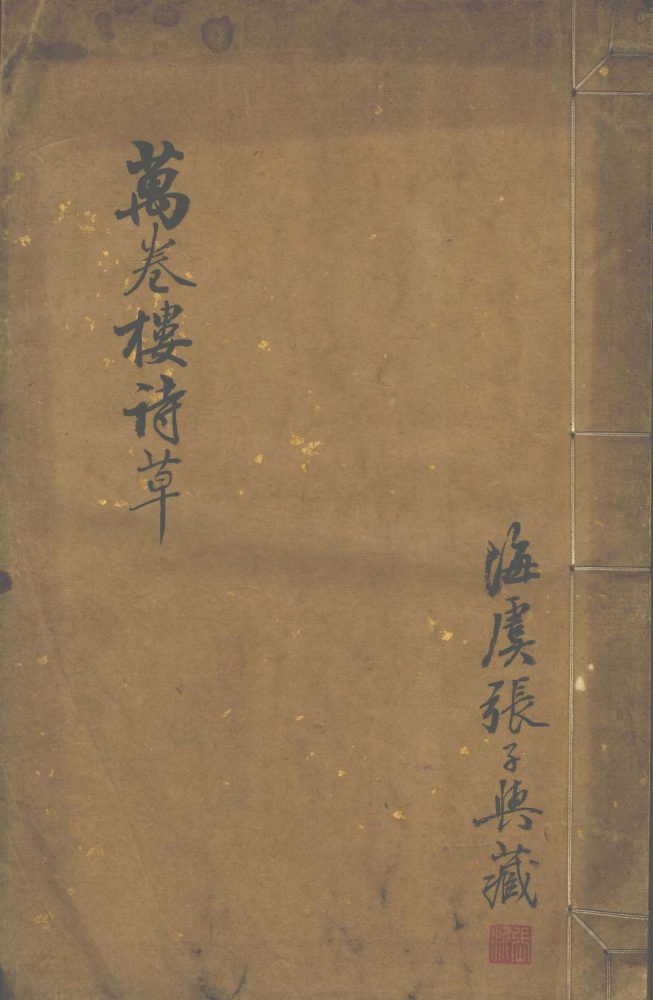 萬卷樓詩草
海虞張子興藏